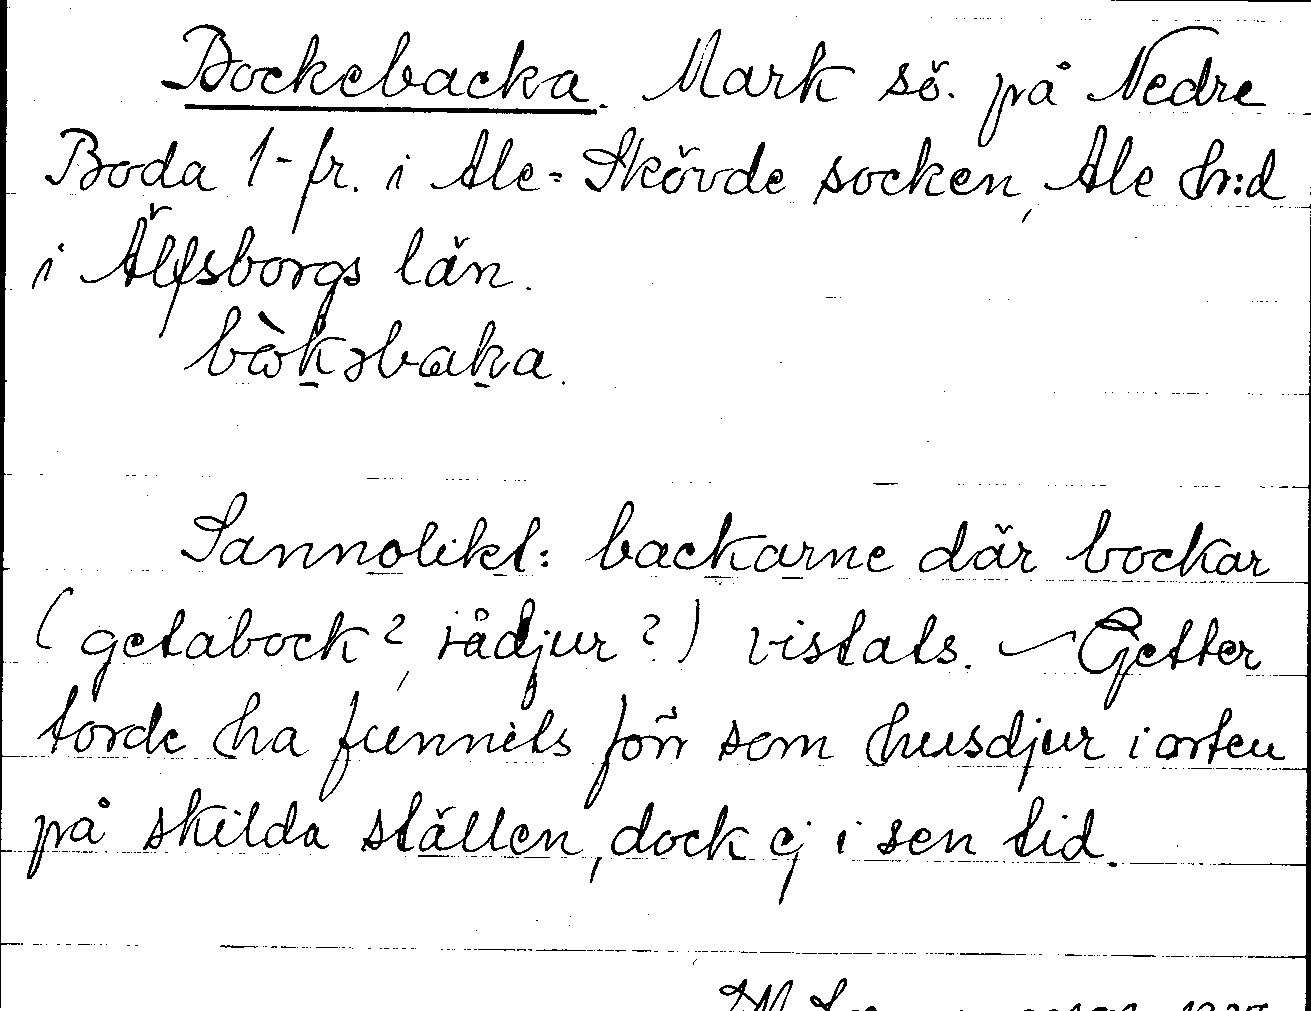 Bockebacka. Mark sö. på Nedre
Boda 1-fr. i Ale-Skövde socken, Ale hr:d
i Älfsborgs län.
bòkəbaka.
Sannolikt: backarne där bockar
(getabock?, rådjur?) vistats. — Getter
torde ha funnits förr som husdjur i orten
på skilda ställen, dock ej i sen tid.